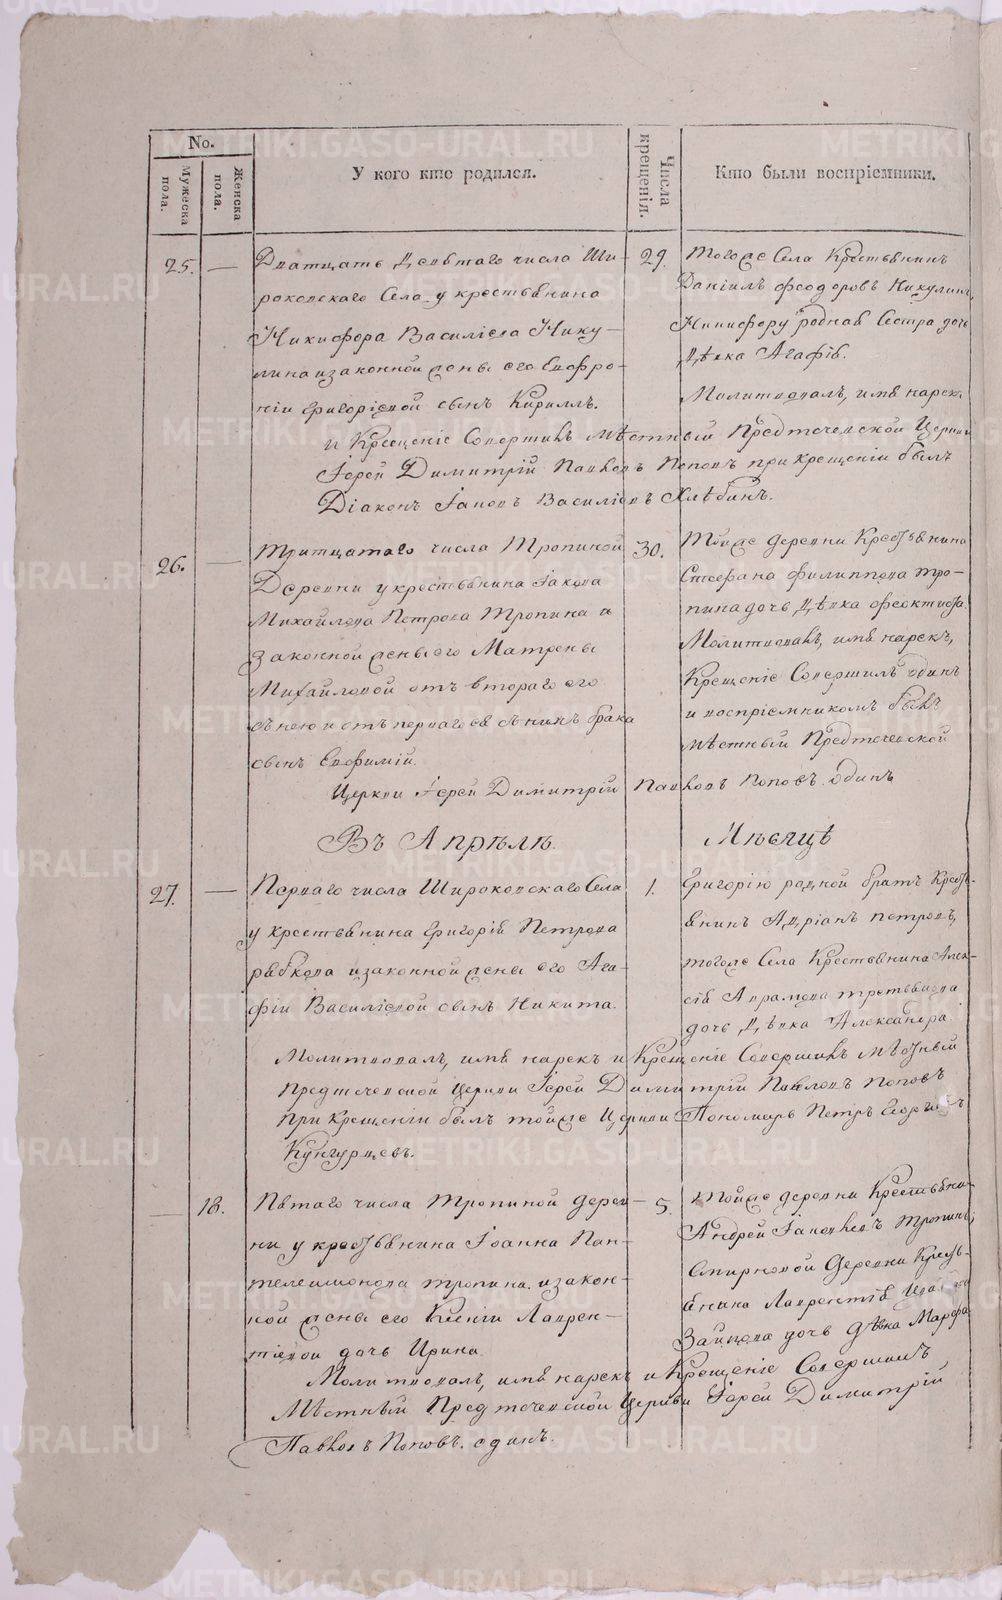 No.
Мужеска пола.
Женска пола.
У кого кто родился.
Числа крещенія.
Кто были воспріемники.
25. —
Дватцать Девятаго числа Ши-
роковскаго Села у крестьянина
Никифора Василіева Нику-
лина и законной жены его Евфро-
ніи Григоріевой сынъ Кириллъ.
29.
тогоже Села Крестьянинъ
Даніилъ Феодоровъ Никулинъ,
Никифору родная Сестра дочь
Дѣвка Агафія.
Молитвовалъ, имя нарекъ
и Крещеніе Совершилъ мѣстный Предтечевской Церкви
Іерей Димитрій Павловъ Поповъ при крещеніи былъ
Діаконъ Іаковъ Василіевъ Хлѣбинъ.
26. —
Тритцатаго числа Тропиной
Деревни у крестьянина Іакова
Михайлова Петрова Тропина и
законной жены его Матроны
Михайловой отъ втораго его
съ нею и отъ перваго ея съ нимъ брака
сынъ Евфимій.
30.
Тойже деревни Крестьянина
Стефана Филиппова Тро-
пина дочь Дѣвка Феоктиста.
Молитвовалъ, имя нарекъ,
Крещеніе Совершилъ одинъ
и воспріемникомъ былъ
мѣстный Предтечевской
Церкви Іерей Димитрій Павловъ Поповъ одинъ
Въ Апрѣлѣ Мѣсяцѣ
27. —
Перваго числа Широковскаго Села
у крестьянина Григорія Петрова
Рябкова и законной жены его Ага-
фіи Василіевой сынъ Никита.
1.
Григорію родной братъ Кресть-
янинъ Адріанъ Петровъ,
тогоже Села Крестьянина Алек-
сія Аврамова Третьякова
дочь Дѣвка Александра.
Молитвовалъ, имя нарекъ и Крещеніе Совершилъ Мѣстный
Предтечевской Церкви Іерей Димитрій Павловъ Поповъ
при Крещеніи былъ тойже Церкви Пономарь Петръ Георгіевъ
Кунгурцевъ.
— 18.
Пятаго числа Тропиной Дерев-
ни у крестьянина Іоанна Пан-
телеимонова Тропина и закон-
ной жены его Ксеніи Лаврен-
тіевой дочь Ирина.
5.
тойже деревни Крестьяни-
Андрей Іаковлевъ Тропинъ,
Смирновой Деревни Кресть-
янина Лаврентія
Зайкова дочь Дѣвка Марфа
Молитвовалъ, имя нарекъ и Крещеніе Совершилъ
Мѣстный Предтечевской Церкви Іерей Димитрій
Павловъ Поповъ. одинъ.